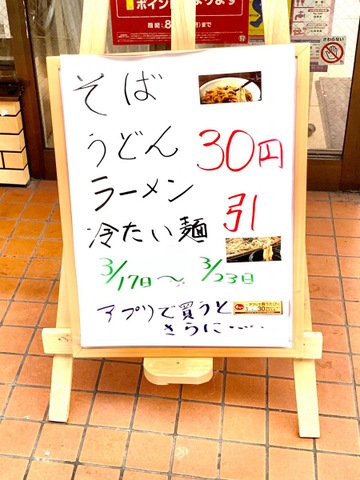 ポイント
期間:8
さわらないで
そば
うどん
ラーメン
冷たい麺
30円
引
3/17日～3/23日
アプリで買うと
さらに・・・・・